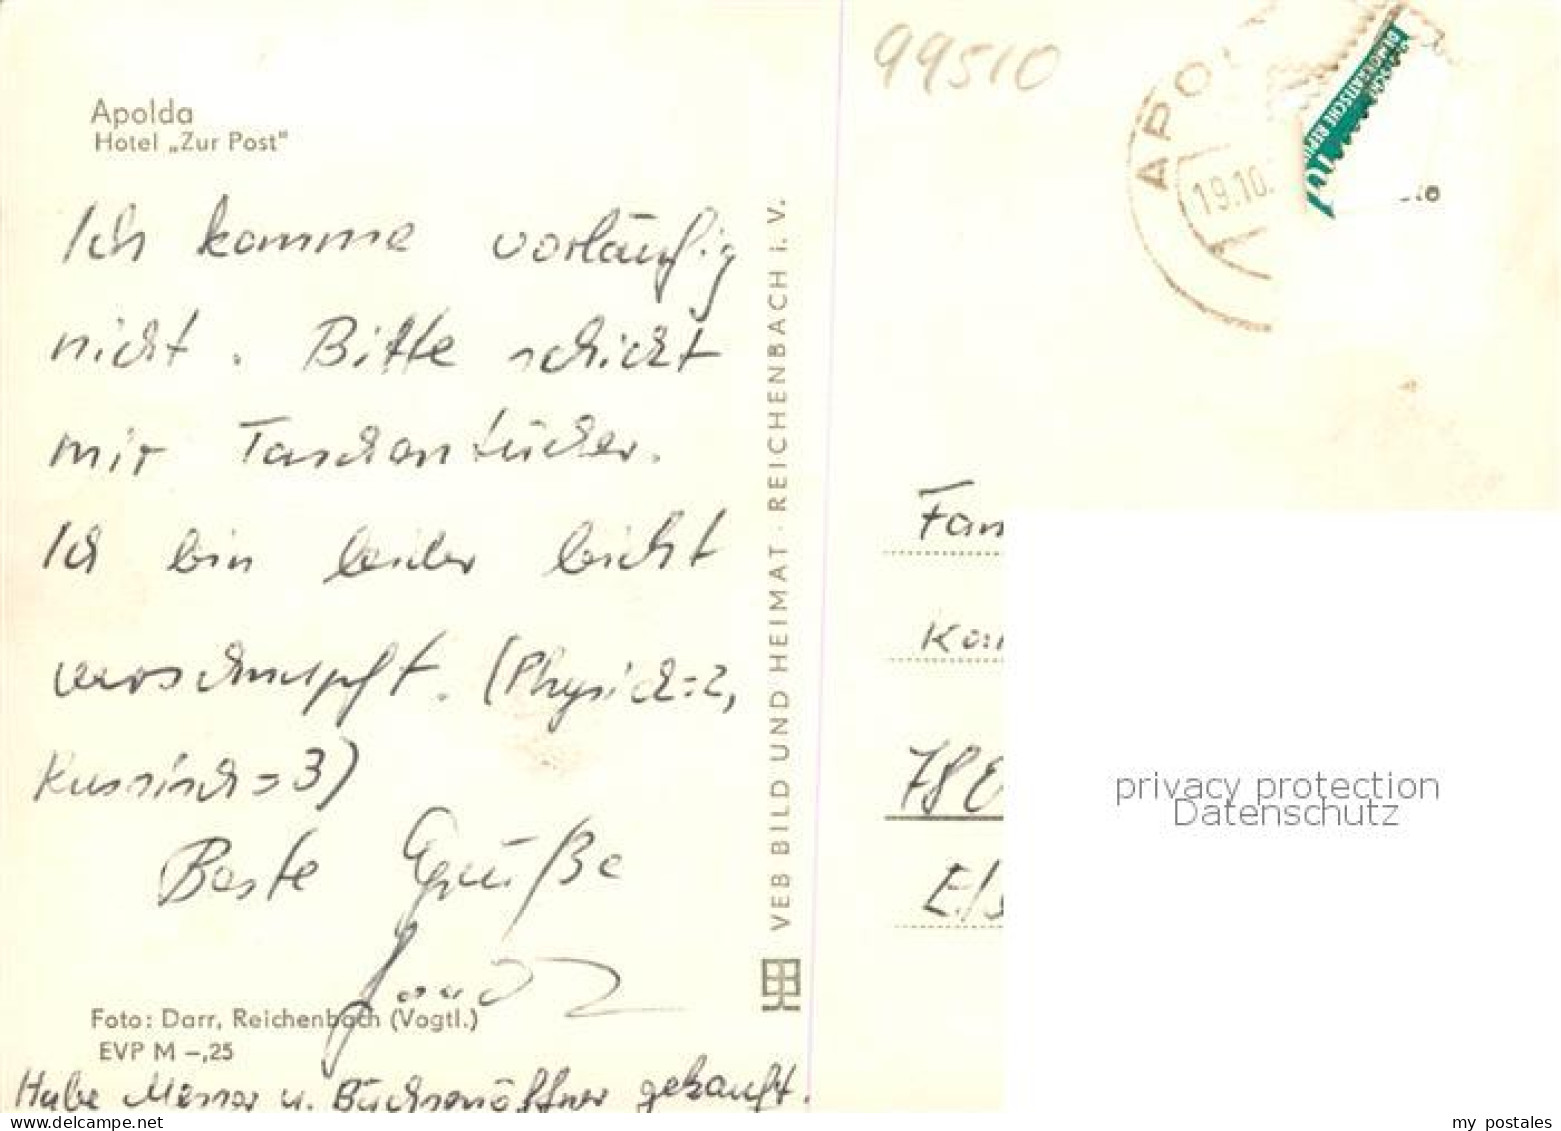 99510
Apolda
Hotel „Zur Post"
Ich komme vorläufig
nicht. Bitte schickt
mir Taschentücher.
Ich bin leider leicht
verschnupft. (Physick=2,
Russisch=3)
Beste Grüße
Foto: Darr, Reichenbach (Vogtl.)
EVP M –,25
Habe Messer u. Büchsenöffner gekauft.
VEB BILD UND HEIMAT · REICHENBACH i. V.
APO
19.10.
DEMOKRATISCHE REPU
10
Fam
E/s
privacy protection
Datenschutz
www.delcampe.net
my_postales